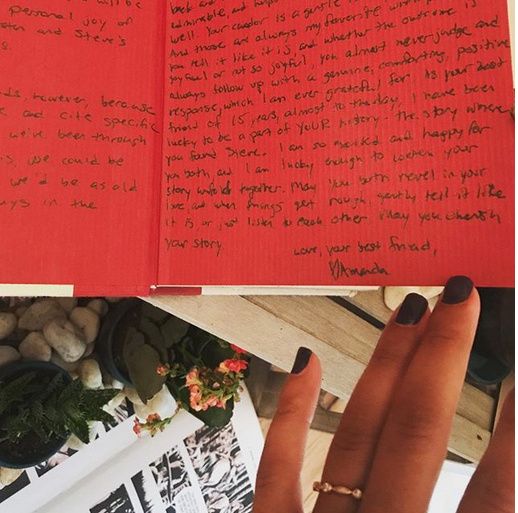 will be
personal joy of
and Steve's
however, because
and cite specific
we've been through
we could be
we'd be as old
guys in the
admirable and
well. Your candor is a gentle
And those are always my favorite
you tell it like it is and whether the outcome is
joyful or not so joyful, you almost never judge and
always follow up with a genuine, comforting, positive
response, which I am ever grateful for. As your best
friend of 15 years, almost to the day, I have been
lucky to be a part of YOUR history. The story where
you found Steve. I am so excited and happy for
you both, and I am lucky enough to watch your
story unfold together. May you both revel in your
love, and when things get rough, gently tell it like
it is, or just listen to each other. May you cherish
your story.
Love, your best friend,
Amanda